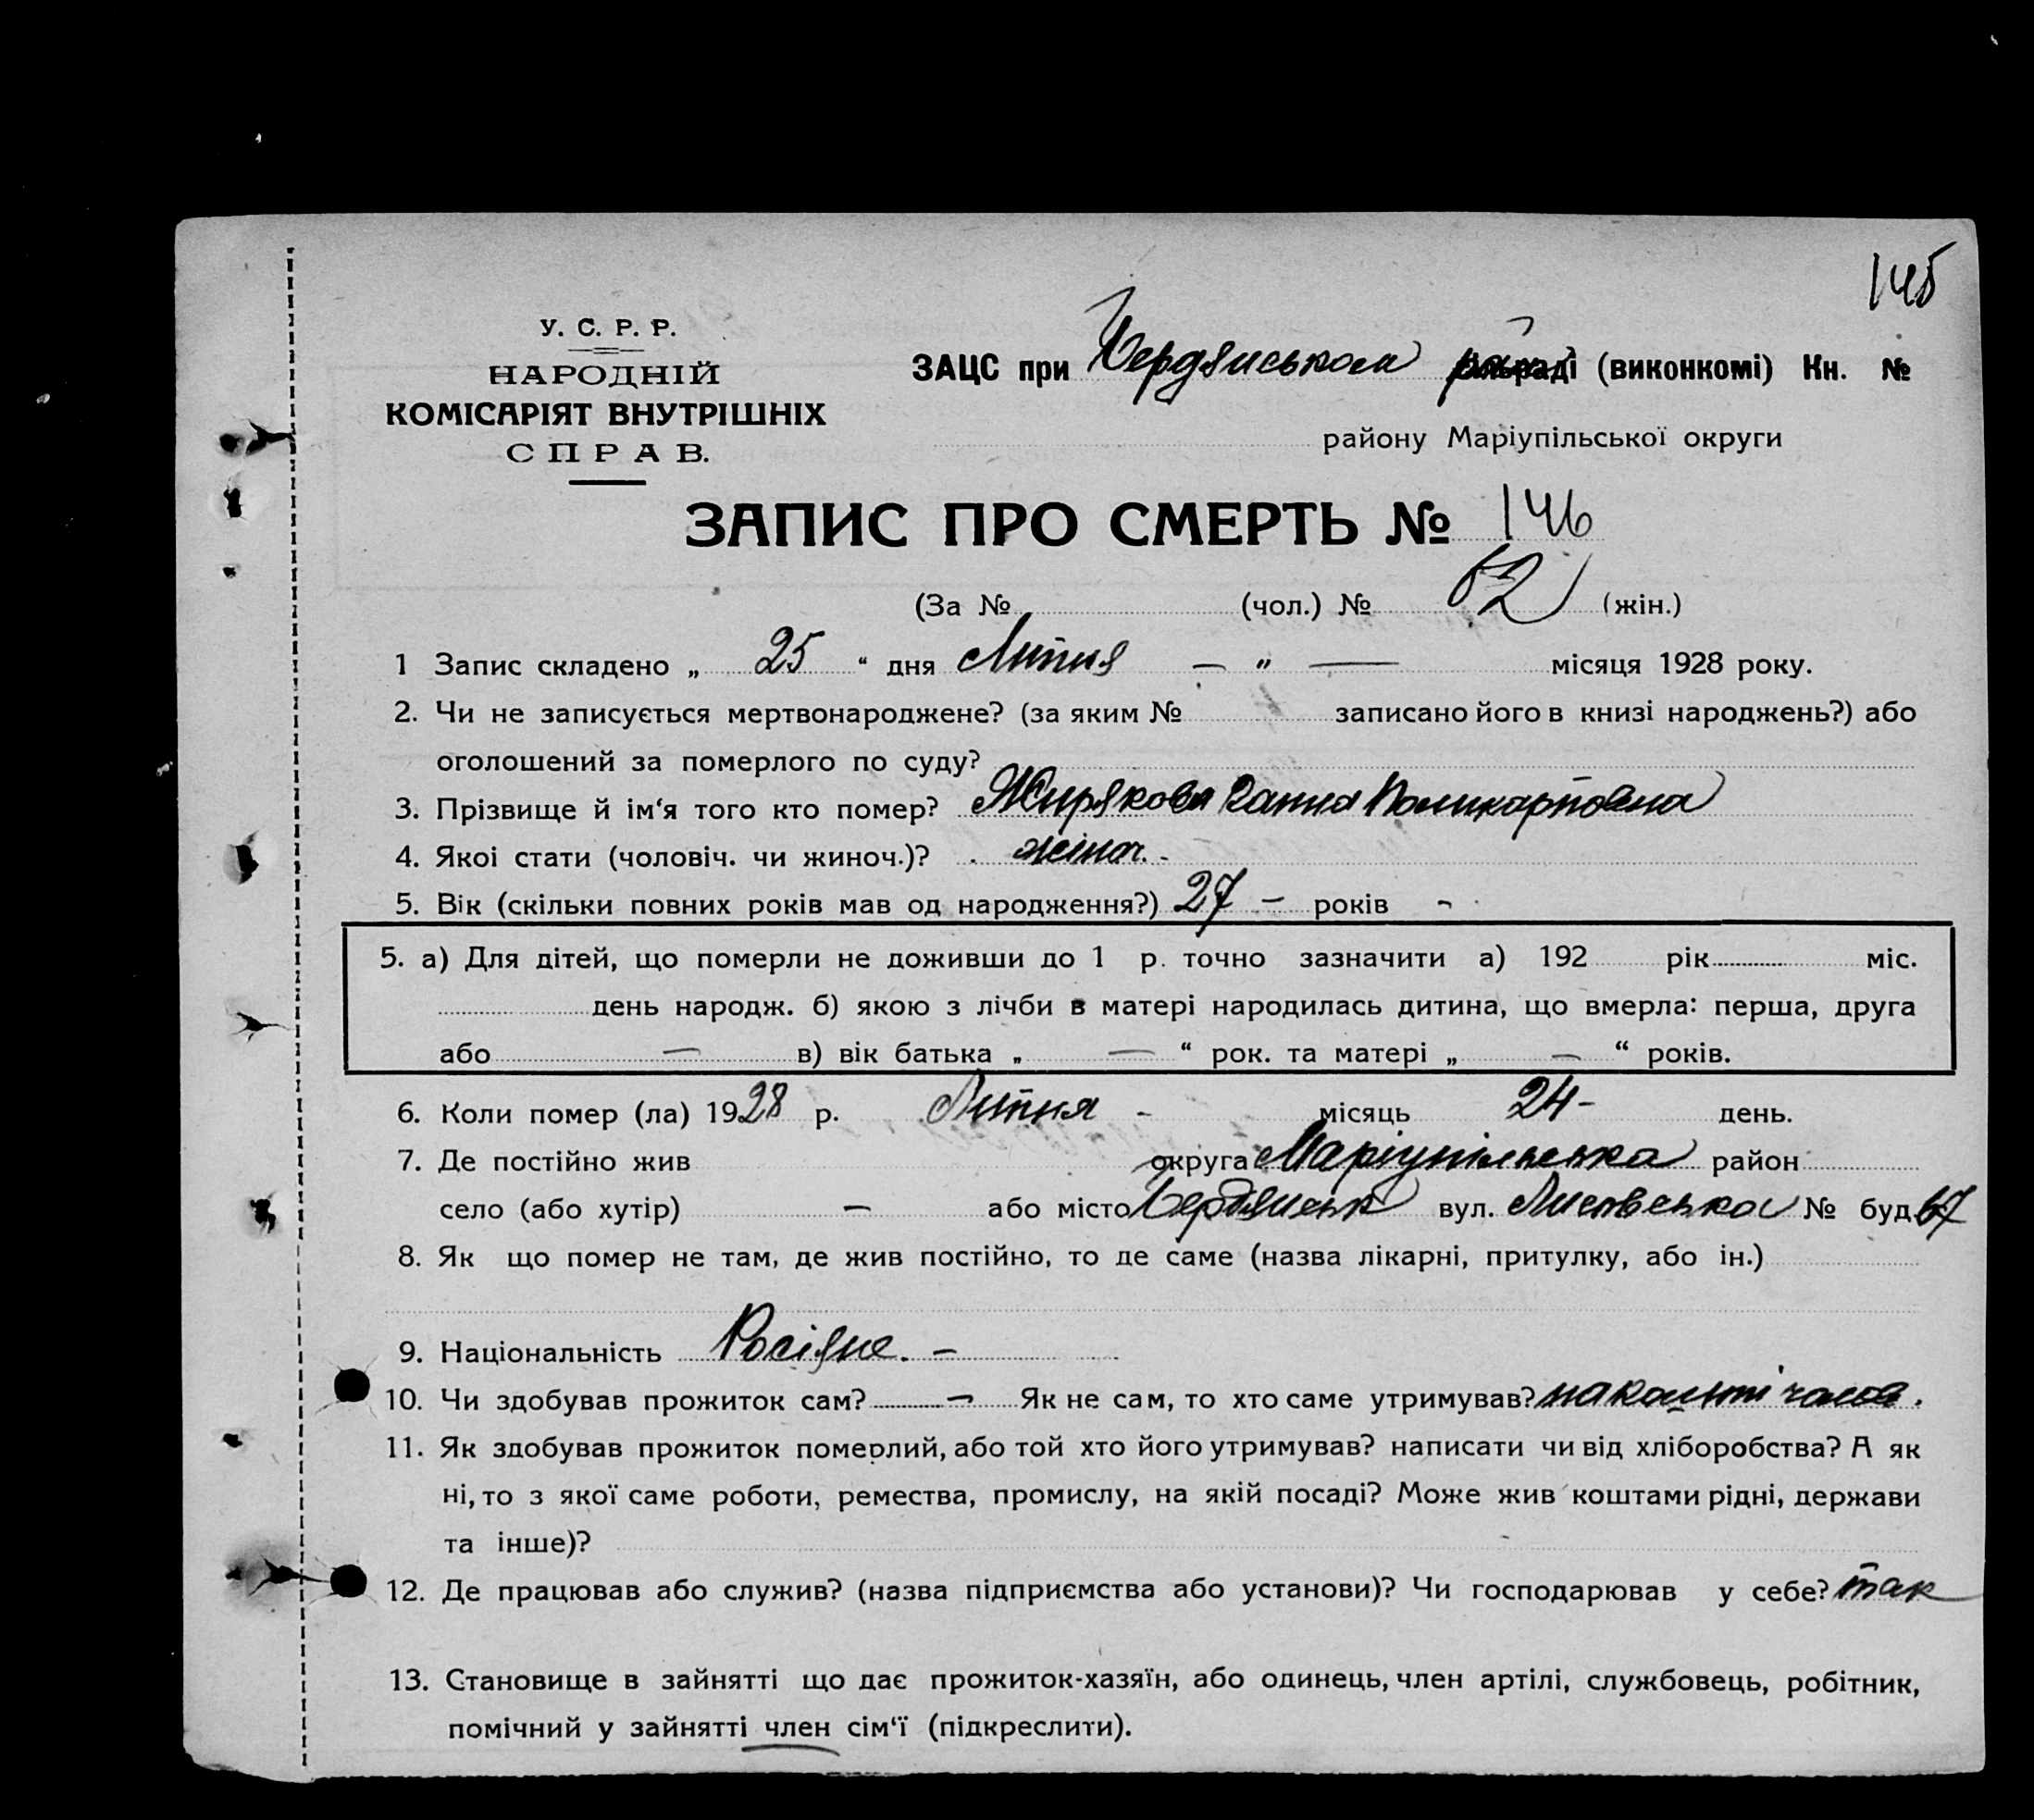 145
У. С. Р. Р.
НАРОДНІЙ
КОМІСАРІЯТ ВНУТРІШНІХ
СПРАВ.
ЗАЦС при Бердянськом раді (виконкомі) Кн. №
району Маріупільської округи
ЗАПИС ПРО СМЕРТЬ № 146
(За № (чол.) № 62 (жін.)
1 Запис складено „ 25 “ дня Липня — " — місяця 1928 року.
2. Чи не записується мертвонароджене? (за яким № записано його в книзі народжень?) або
оголошений за померлого по суду?
3. Прізвище й ім‘я того кто помер? Жирякова Ганна Поликарповна
4. Якоі стати (чоловіч. чи жиноч.)? жіноч. -
5. Вік (скільки повних років мав од народження?) 27 — років -
5. а) Для дітей, що померли не доживши до 1 р. точно зазначити а) 192 рік міс.
день народж. б) якою з лічби в матері народилась дитина, що вмерла: перша, друга
або — в) вік батька „ — “ рок. та матері „ — “ років.
6. Коли помер (ла) 1928 р. Липня - місяць 24- день.
7. Де постійно жив округа Маріупільська район
село (або хутір) — або місто Бердянськ вул. № буд. 67
8. Як що помер не там, де жив постійно, то де саме (назва лікарні, притулку, або ін.)
9. Національність Росіяне. —
10. Чи здобував прожиток сам? — Як не сам, то хто саме утримував? на кошті чолов.
11. Як здобував прожиток померлий, або той хто його утримував? написати чи від хліборобства? А як
ні, то з якої саме роботи, ремества, промислу, на якій посаді? Може жив коштами рідні, держави
та інше)?
12. Де працював або служив? (назва підприємства або установи)? Чи господарював у себе? так
13. Становище в зайнятті що дає прожиток-хазяїн, або одинець, член артілі, службовець, робітник,
помічний у зайнятті член сім‘ї (підкреслити).